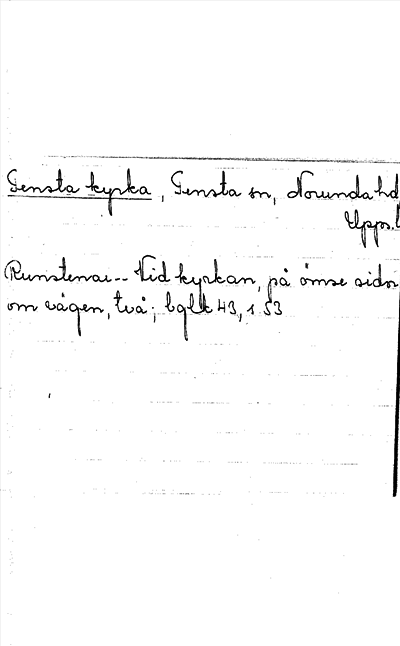 Tensta kyrka, Tensta sn, Norunda hd
Upps. l
Runstenar -- Vid kyrkan, på ömse sidor
om vägen, två; bglk 43, 1 53